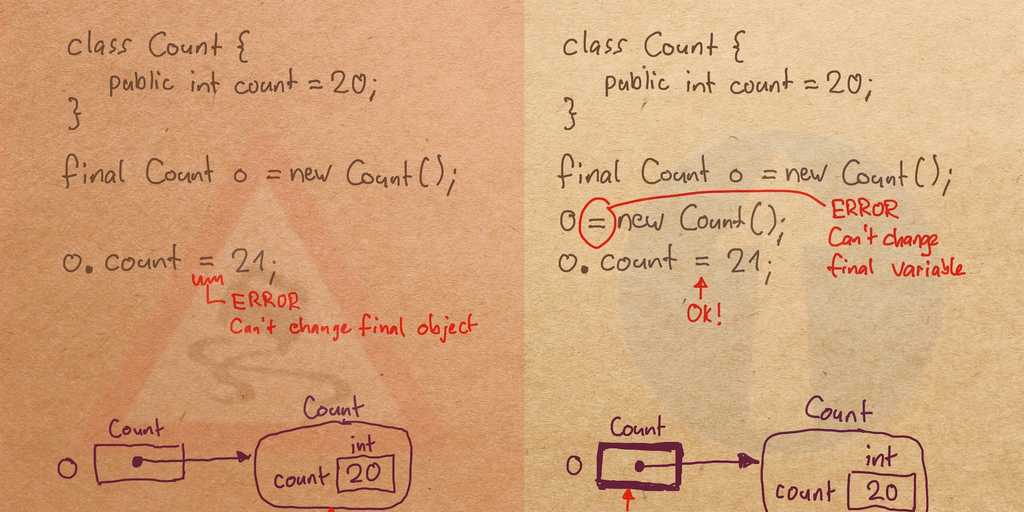 class Count {
public int count = 20;
}
final Count o = new Count();
o. count = 21;
ERROR
Can't change final object
Count
Count
int
o
count 20
class Count {
public int count = 20;
}
final Count o = new Count();
o = new Count();
ERROR
Can't change
final variable
o. count = 21;
Ok!
Count
Count
int
o
count 20